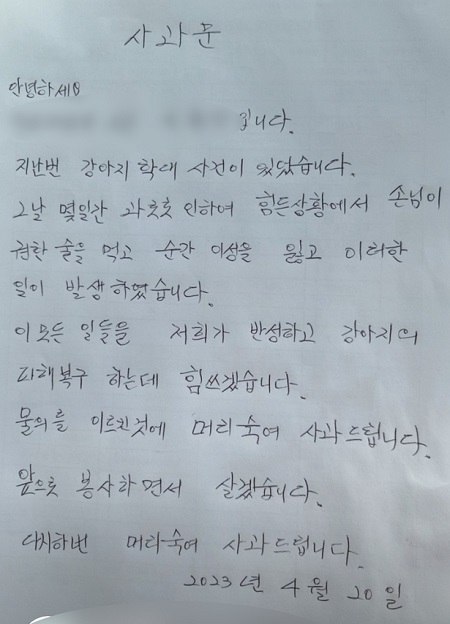 사과문
안녕하세요
입니다.
지난번 강아지 학대 사건이 있었습니다.
그날 몇일간 과로로 인하여 힘든상황에서 손님이
권한 술을 먹고 순간 이성을 잃고 이러한
일이 발생하였습니다.
이 모든 일들을 저희가 반성하고 강아지의
피해복구 하는데 힘쓰겠습니다.
물의를 이르킨것에 머리숙여 사과드립니다.
앞으로 봉사하면서 살겠습니다.
다시하번 머리숙여 사과드립니다.
2023년 4월 20일